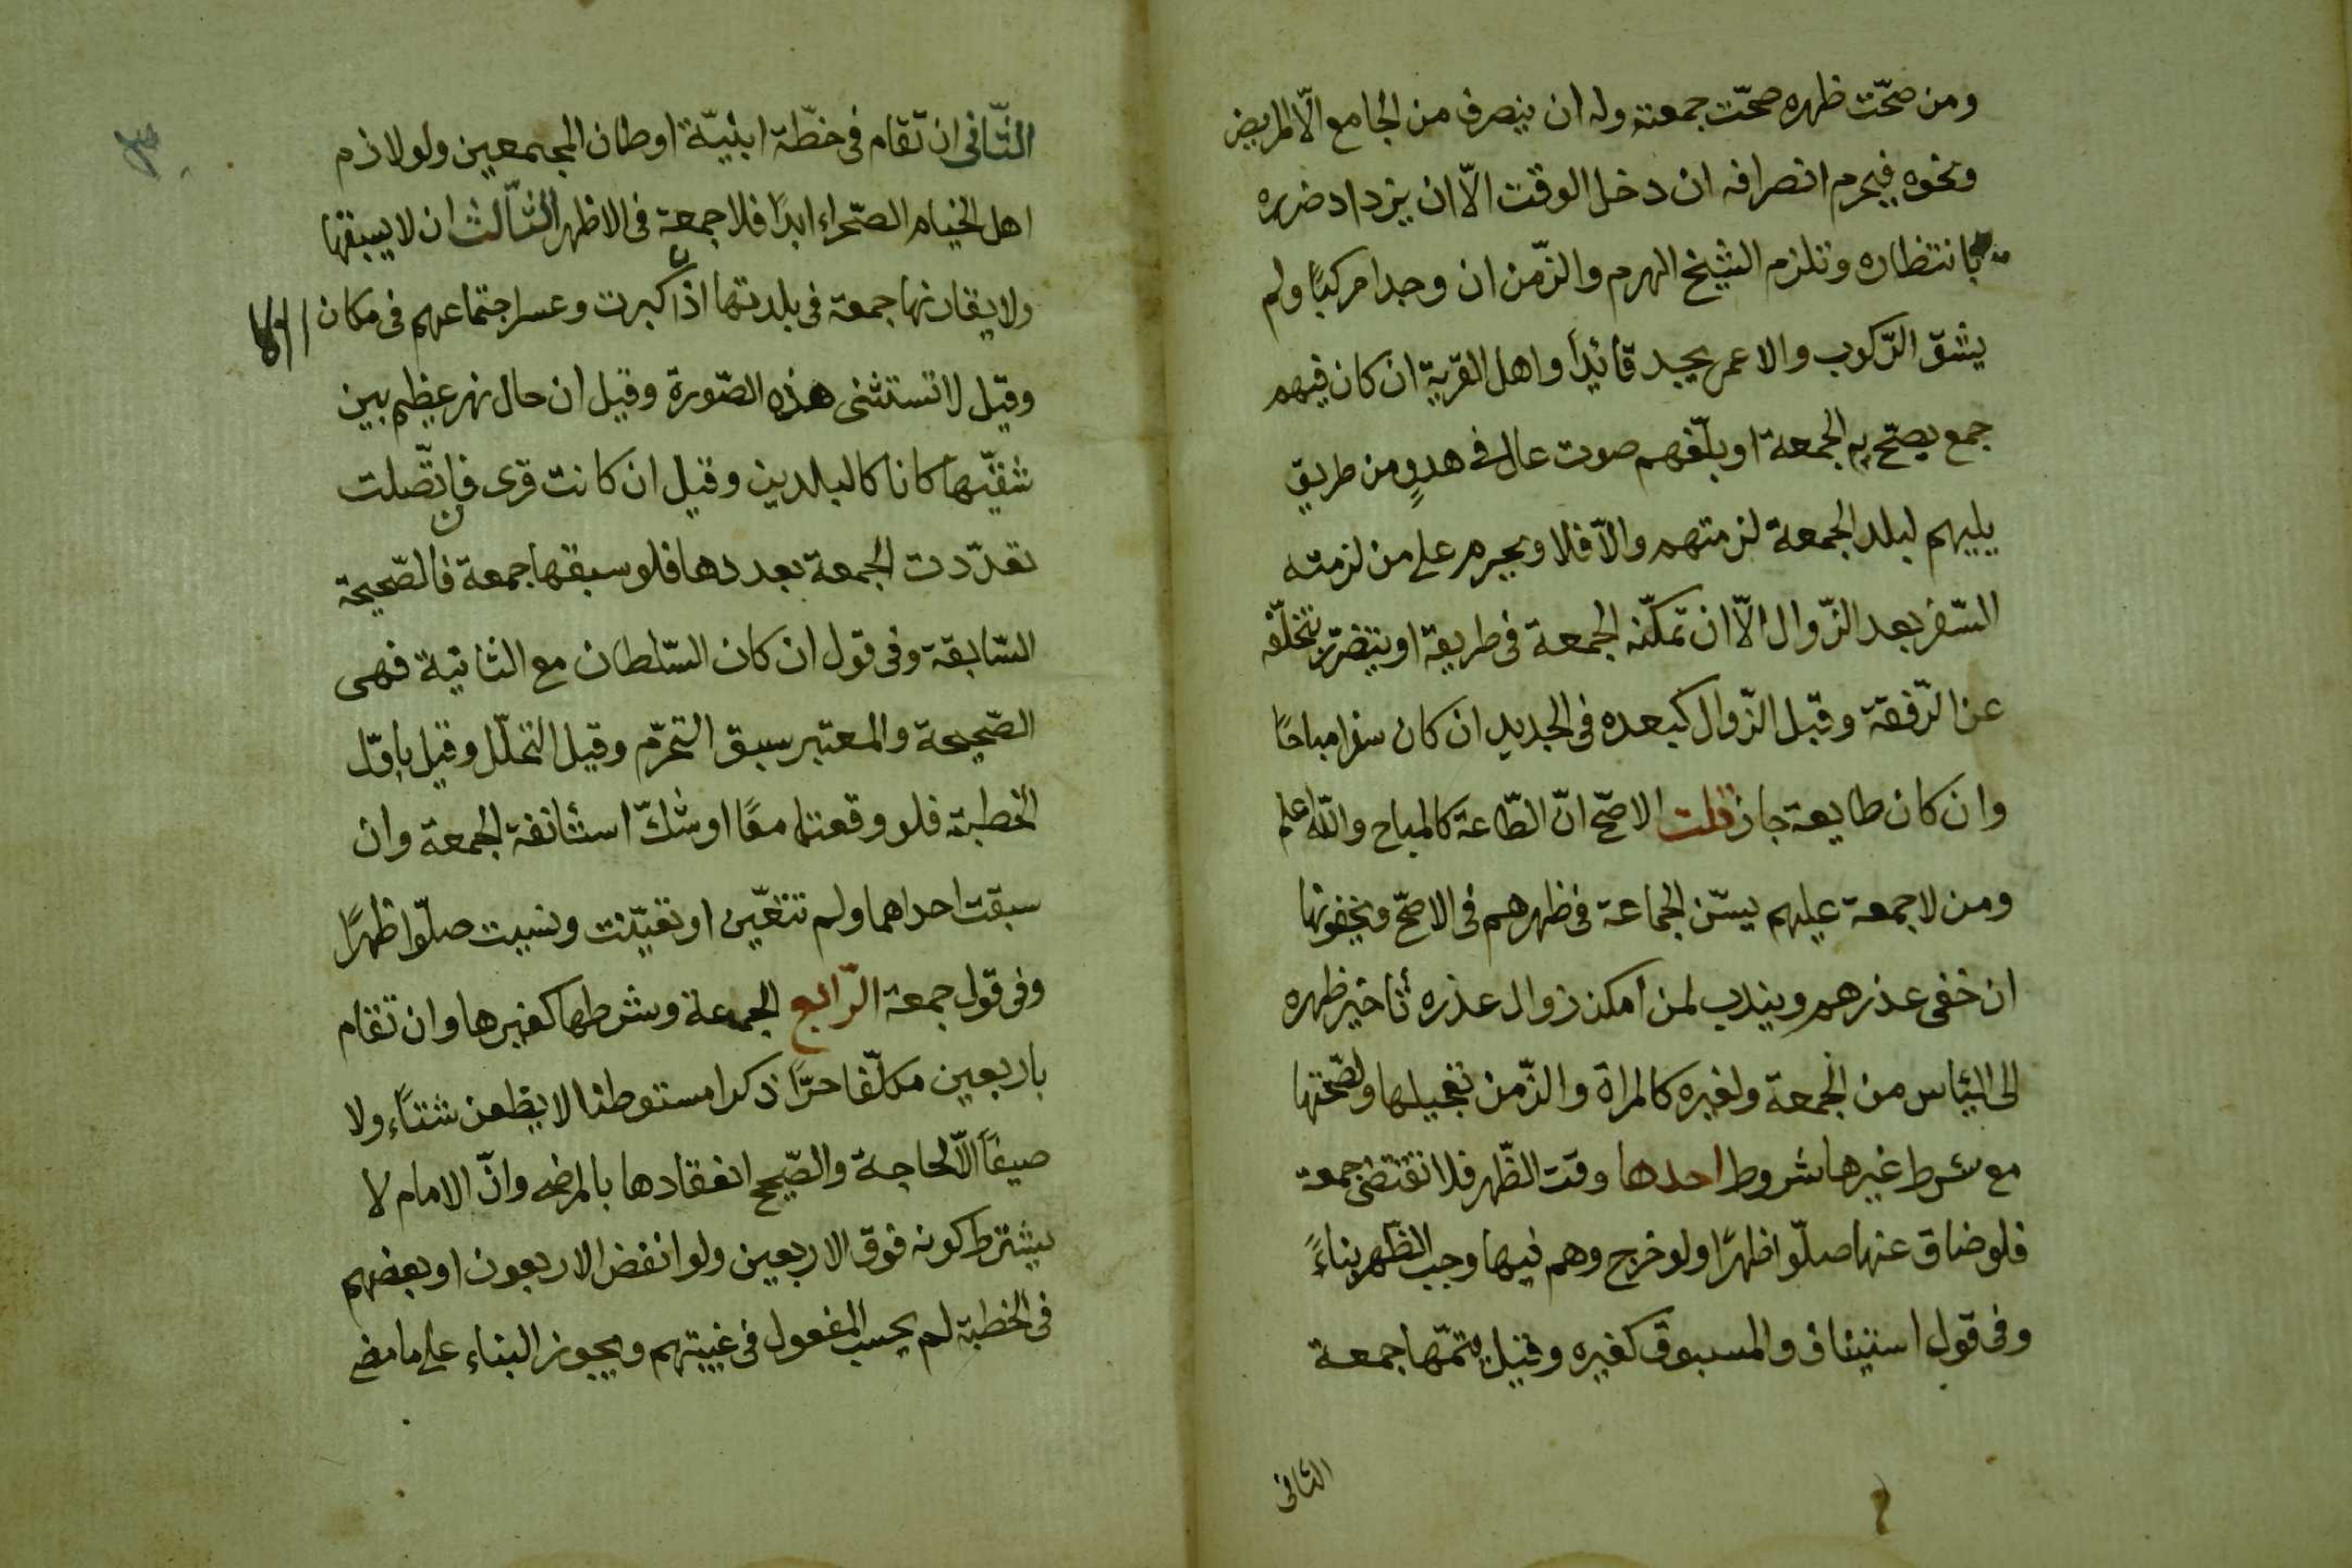 ومن صحّت ظهره صحّت جمعته وله ان ينصرف من الجامع الّا المريض
ونحوه فيحرم انصرافه ان دخل الوقت الّا ان يزداد ضرره
بانتظاره وتلزم الشيخ الهرم والزّمن ان وجدا مركبًا ولم
يشقّ الرّكوب والاعمى يجد قائدًا واهل القرية ان كان فيهم
جمع يصحّ به الجمعة او بلّغهم صوت عال فى هدوٍ من طريق
يليهم لبلد الجمعة لزمتهم والّا فلا ويحرم على من لزمته
السّفر بعد الزّوال الّا ان تمكّنه الجمعة فى طريقه او يتضرّر بتخلّفه
عن الرّفقة وقبل الزّوال كبعده فى الجديد ان كان سفرا مباحًا
وان كان طايعة جاز قلت الاصحّ انّ الطّاعة كالمباح والله اعلم
ومن لا جمعة عليهم يسّن الجماعة فى ظهرهم فى الاصحّ ويخفونها
ان خفى عذرهم ويندب لمن امكن زوال عذره تأخير ظهره
الى اليئاس من الجمعة ولغيره كالمراة والزّمن تعجيلها ولصّحتها
مع شرط غيرها شروط احدها وقت الظّهر فلا تقتضى جمعة
فلو ضاق عنها صلّوا ظهرًا ولو خرج وهم فيها وجب الظّهر بناءً
وفى قول استينافا والمسبوق كغيره وقيل يتمّها جمعة
الثانى
الثّانى ان تقام فى خطّة ابنيّة اوطان المجمعين ولو لازم
اهل الخيام الصّحراء ابدًا فلا جمعة فى الاظهر الثّالث ان لا يسبقها
ولا يقارنها جمعة فى بلدتها اذا كبرت وعسر اجتماعهم فى مكان
وقيل لا تستثنى هذه الصّورة وقيل ان حال نهر عظيم بين
شقيّها كانا كالبلدين وقيل ان كانت قرى فاتّصلت
تعدّدت الجمعة بعددها فلو سبقها جمعة فالصّحيحة
السّابقة وفى قول ان كان السّلطان مع الثانية فهى
الصّحيحة والمعتبر سبق التحرّم وقيل التحلّل وقيل باوّل
الخطبة فلو وقعتا معًا او شكّ استأنفة الجمعة وان
سبقت احداهما ولم تتعيّن او تعيّنت ونسيت صلّوا ظهرًا
وفى قول جمعة الرّابع الجمعة وشرطها كغيرها وان تقام
باربعين مكلّفا حرّا ذكرا مستوطنا لا يظعن شتاًء ولا
صيفًا الّا لحاجة والصّيح انعقادها بالمرضى وانّ الامام لا
يشترط كونه فوق الاربعين ولو انفض الاربعون او بعضهم
فى الخطبة لم يحسب المفعول فى غيبتهم ويجوز البناء على ما مضى